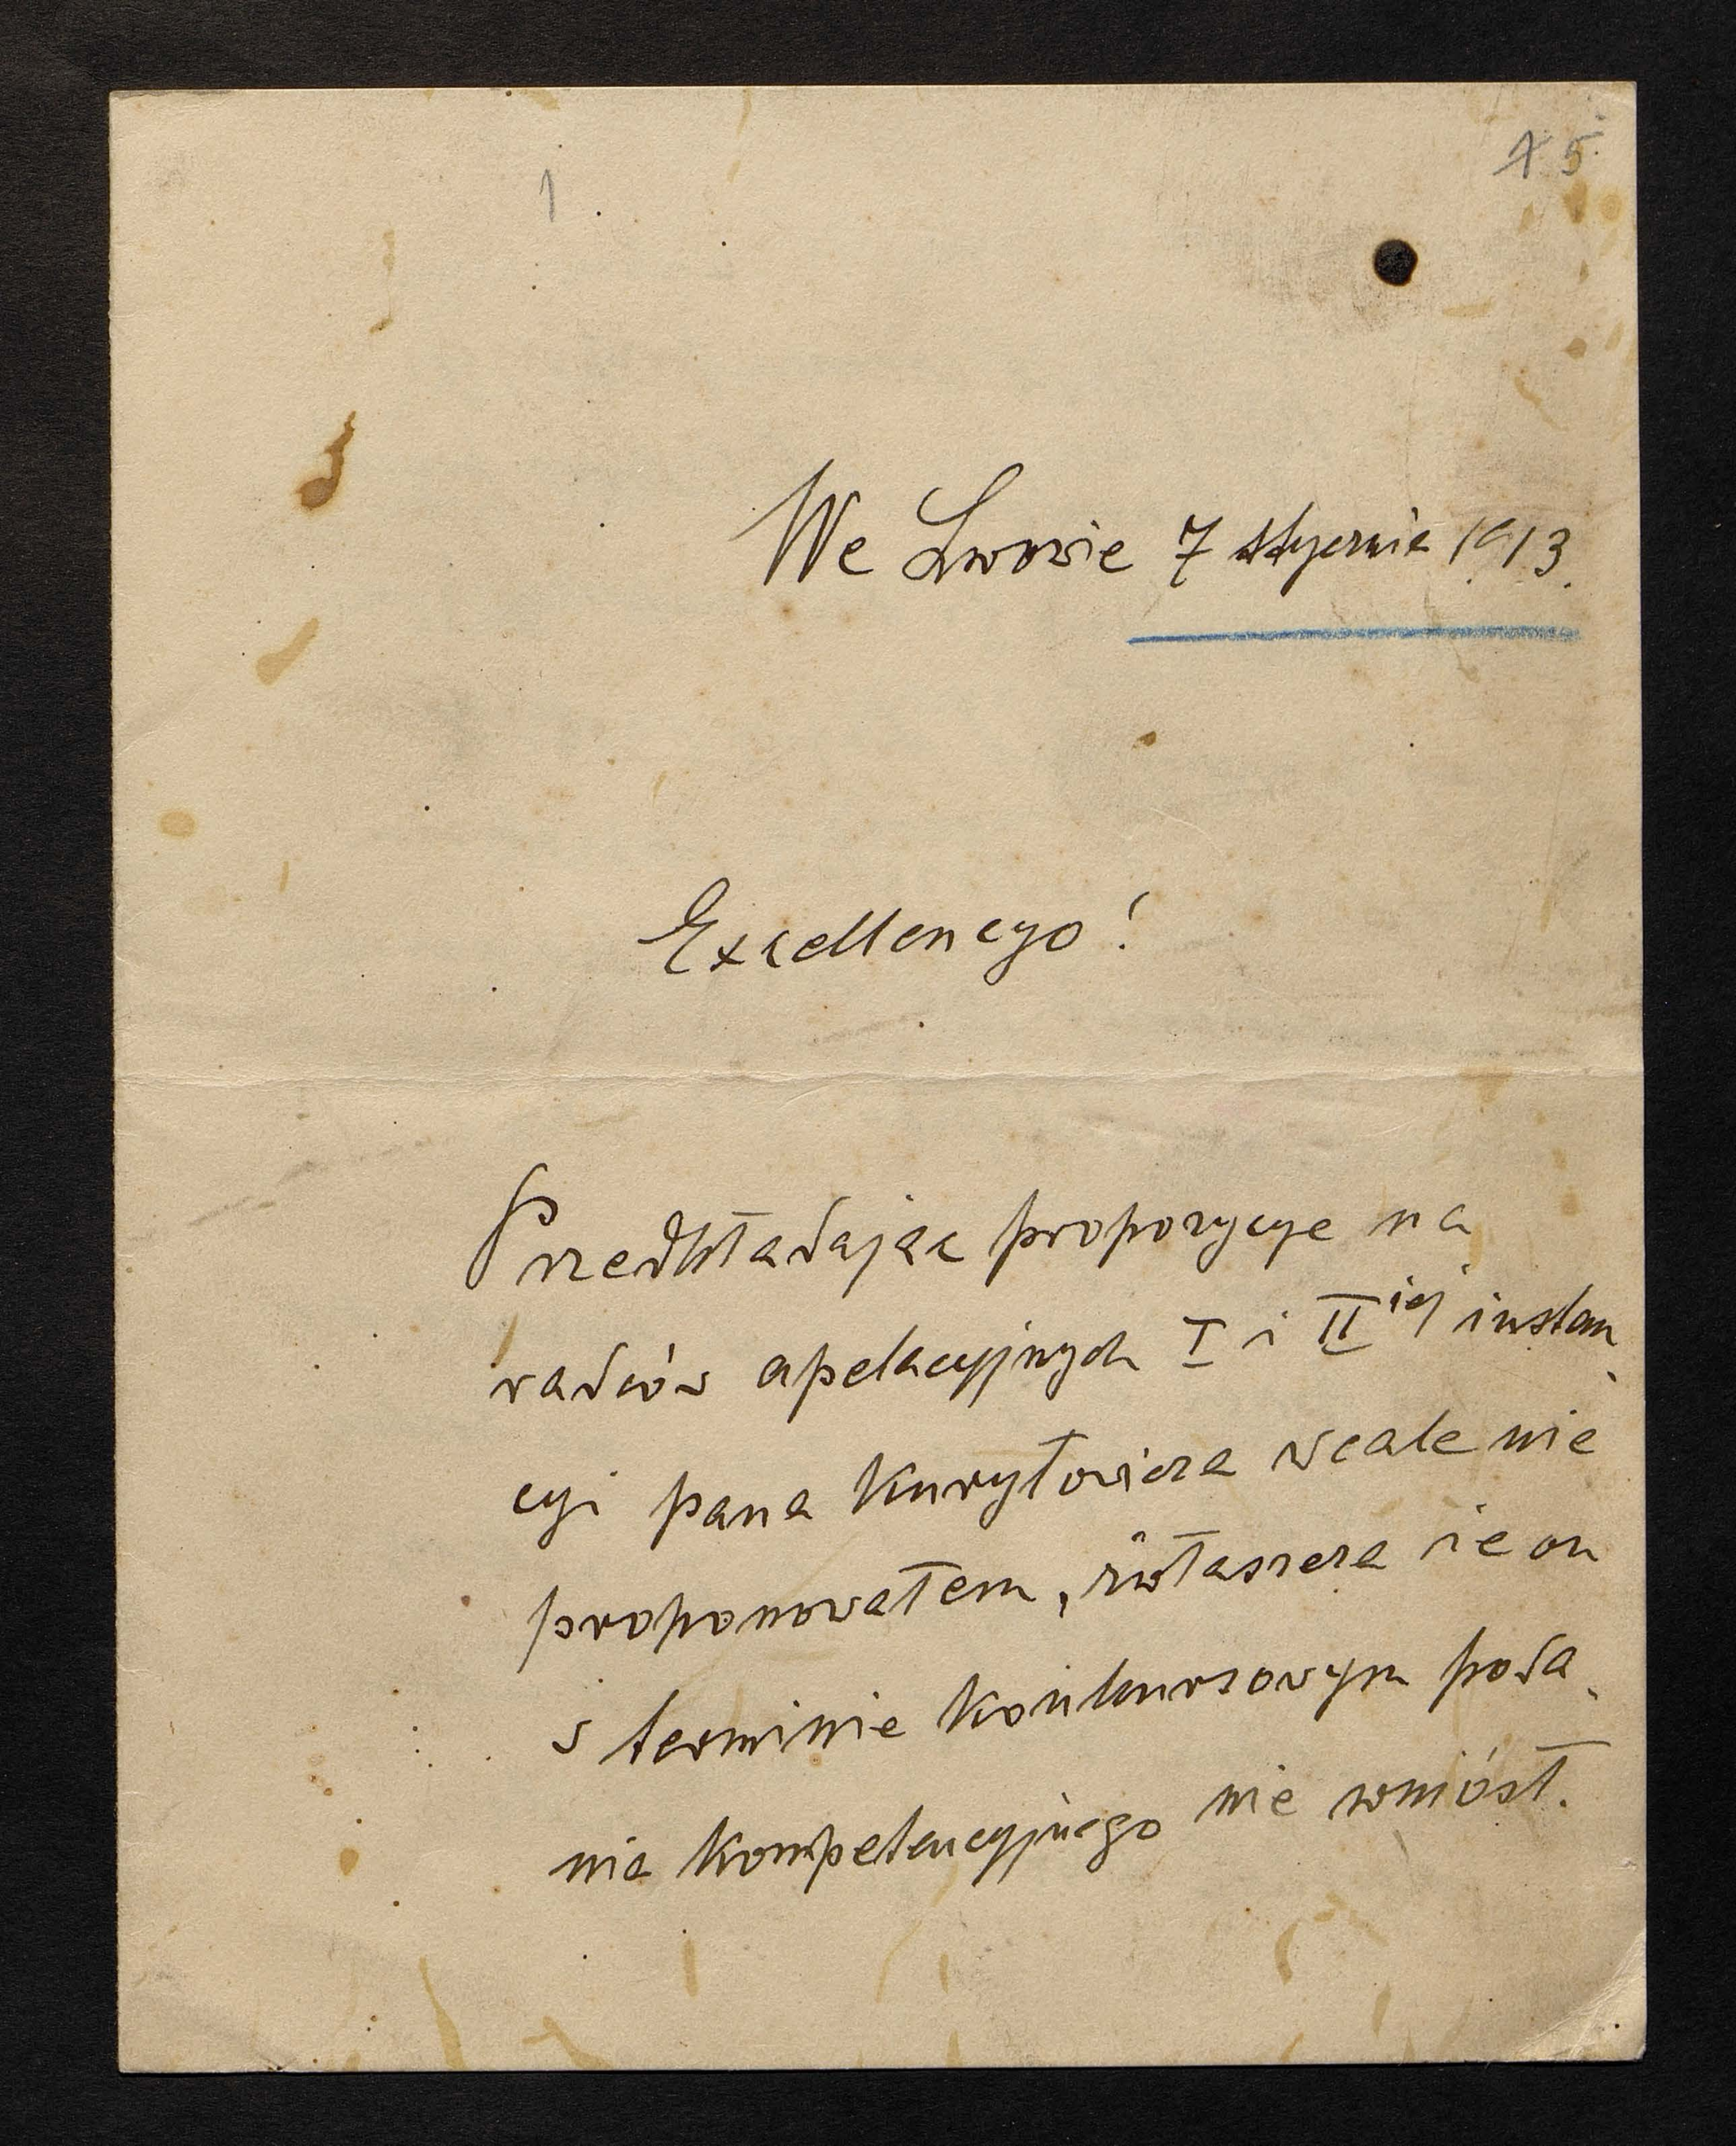 1
15
We Lwowie 7 stycznia 1913.
Excellencyo!
Przedkładając propozycye na
radców apelacyjnych I i II iej instan
cyi pana Kuryłowicza wcale nie
proponowałem, zwłaszcza że on
w terminie konkursowym poda
nia kompetencyjnego nie wniósł.